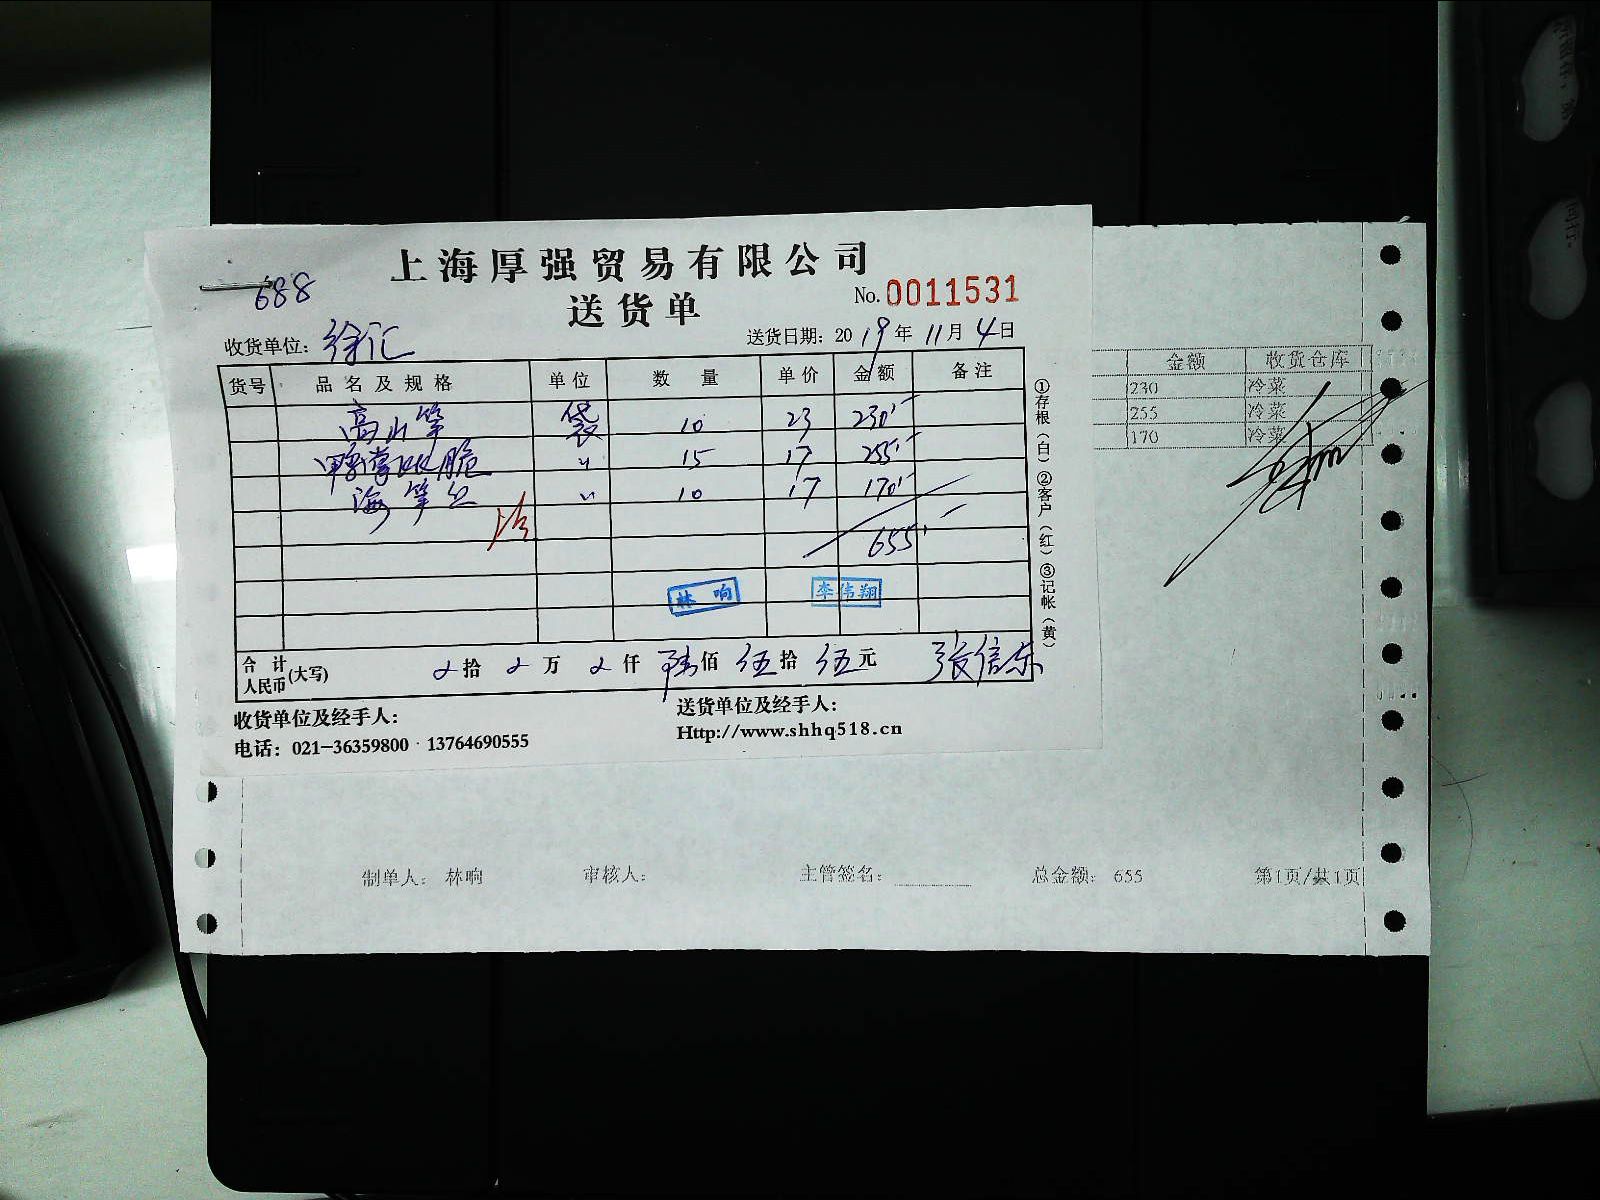 上海厚强贸易有限公司
688
送货单
No.0011531
收货单位：徐汇
送货日期：2019年11月4日
货号 品名及规格 单位 数量 单价 金额 备注
高山笋 袋 10 23 230
鸭掌 脆 〃 15 17 255
海笋丝 〃 10 17 170
冷
655
林响 李伟翔
合计人民币(大写) 拾 万 仟 陆佰 伍拾 伍元 张信东
收货单位及经手人：
送货单位及经手人：
电话：021-36359800 13764690555
Http://www.shhq518.cn
①存根(白)②客户(红)③记帐(黄)
金额 收货仓库
230 冷菜
255 冷菜
170 冷菜
制单人：林响 审核人： 主管签名： 总金额：655 第1页/共1页